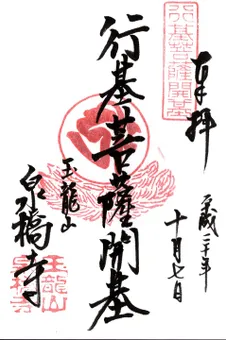 行基菩薩開基
奉拝
平成二十年
十月七日
行基菩薩開基
玉龍山
玉龍山